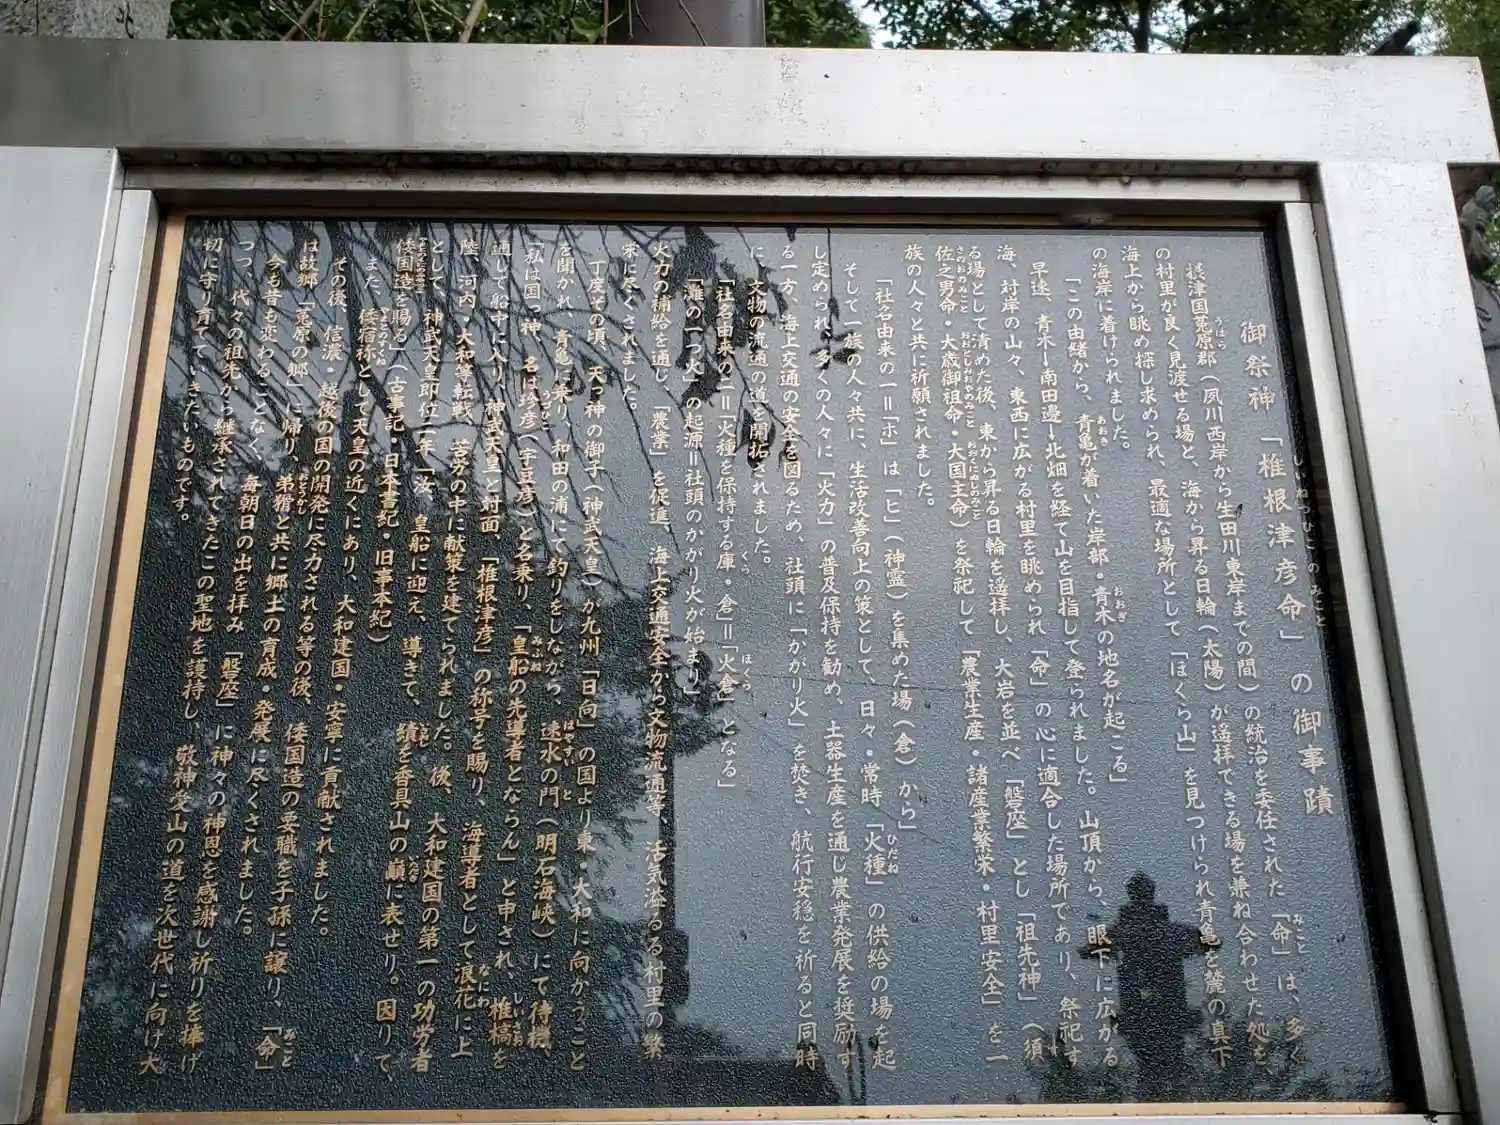 御祭神 「椎根津彦命」の御事蹟
摂津国菟原郡(夙川西岸から生田川東岸までの間)の統治を委任された「命」は、多く
の村里が良く見渡せる場と、海から昇る日輪(太陽)が遥拝できる場を兼ね合わせた処を、
海上から眺め探し求められ、最適な場所として「ほくら山」を見つけられ青亀を麓の真下
の海岸に着けられました。
「この由緒から、青亀が着いた岸部・青木の地名が起こる」
早速、青木―南田邊―北畑を経て山を目指して登られました。山頂から、眼下に広がる
海、対岸の山々、東西に広がる村里を眺められ「命」の心に適合した場所であり、祭祀す
る場として清めた後、東から昇る日輪を遥拝し、大岩を並べ「磐座」とし「祖先神」(須
佐之男命・大歳御祖命・大国主命)を祭祀して「農業生産・諸産業繁栄・村里安全」を一
族の人々と共に祈願されました。
「社名由来の一=「ホ」は「ヒ」(神霊)を集めた場(倉)から」
そして一族の人々共に、生活改善向上の策として、日々・常時「火種」の供給の場を起
し定められ、多くの人々に「火力」の普及保持を勧め、土器生産を通じ農業発展を奨励す
る一方、海上交通の安全を図るため、社頭に「かがり火」を焚き、航行安穏を祈ると同時
に、文物の流通の道を開拓されました。
「社名由来の二=「火種を保持する庫・倉」=「火倉」となる」
「灘の一つ火」の起源=社頭のかがり火が始まり」
火力の補給を通じ、「農業」を促進、海上交通安全から文物流通等、活気溢るる村里の繁
栄に尽くされました。
丁度その頃、天つ神の御子(神武天皇)が九州「日向」の国より東・大和に向かうこと
を聞かれ、青亀に乗り、和田の浦にて釣りをしながら、速水の門(明石海峡)にて待機、
「私は国つ神、名は珍彦(宇豆彦)と名乗り、「皇船の先導者とならん」と申され、椎槁を
通して船中に入り、神武天皇と対面、「椎根津彦」の称号を賜り、海導者として浪花に上
陸、河内・大和等転戦、苦労の中に献策を建てられました。後、大和建国の第一の功労者
として、神武天皇即位二年「汝、皇船に迎え、導きて、績を香具山の巓に表せり。因りて、
倭国造を賜る」(古事記・日本書紀・旧事本紀)
また、倭宿祢として天皇の近くにあり、大和建国・安寧に貢献されました。
その後、信濃・越後の国の開発に尽力される等の後、倭国造の要職を子孫に譲り、「命」
は故郷「菟原の郷」に帰り、弟猾と共に郷土の育成・発展に尽くされました。
今も昔も変わることなく、毎朝日の出を拝み「磐座」に神々の神恩を感謝し祈りを捧げ
つつ、代々の祖先から継承されてきたこの聖地を護持し、敬神愛山の道を次世代に向け大
切に守り育てていきたいものです。